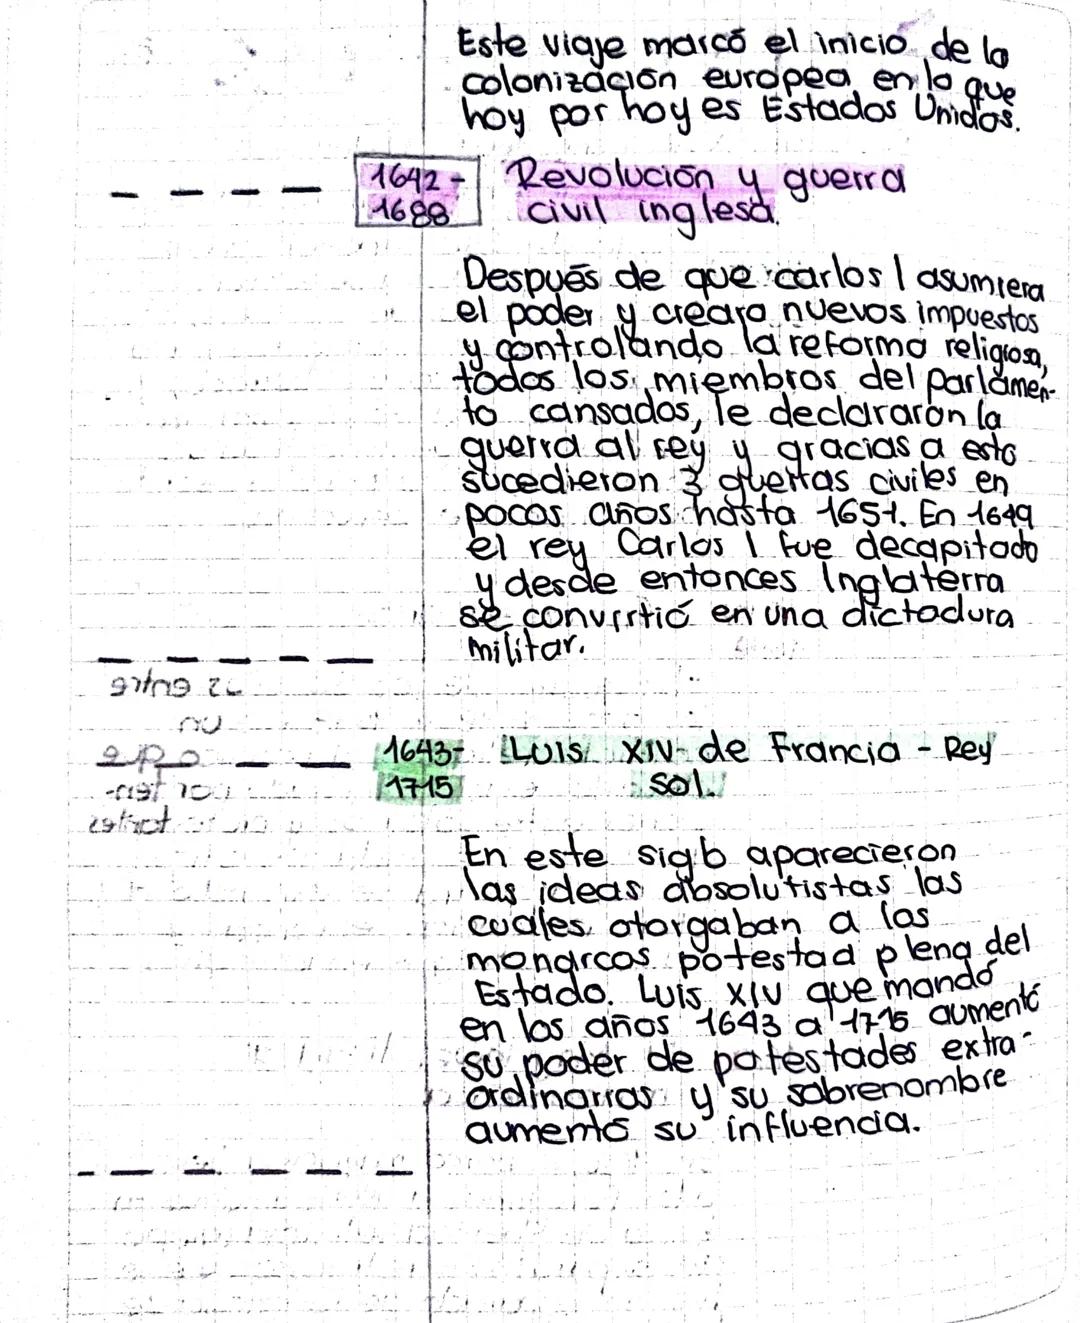 Este viaje marcó el inicio de la
colonización europea en lo que
hoy por hoy es Estados Unidos.
1642 - Revolución y guerra
1688 civil inglesa.
Después de que carlos I asumiera
el poder y creara nuevos impuestos
y controlando la reforma religiosa,
todos los miembros del parlamen-
to cansados, le declararon la
guerra al rey y gracias a esto
sucedieron 3 guerras civiles en
pocos años hasta 1651. En 1649
el rey Carlos I fue decapitado
y desde entonces Inglaterra
se convirtió en una dictadura
militar.
1643- Luis XIV de Francia - Rey
1715 sol.
En este siglo aparecieron
las ideas absolutistas las
cuales otorgaban a los
monarcas potestad plena del
Estado. Luis XIV que mandó
en los años 1643 a 1715 aumentó
su poder de potestades extra-
ordinarias y su sobrenombre
aumentó su influencia.